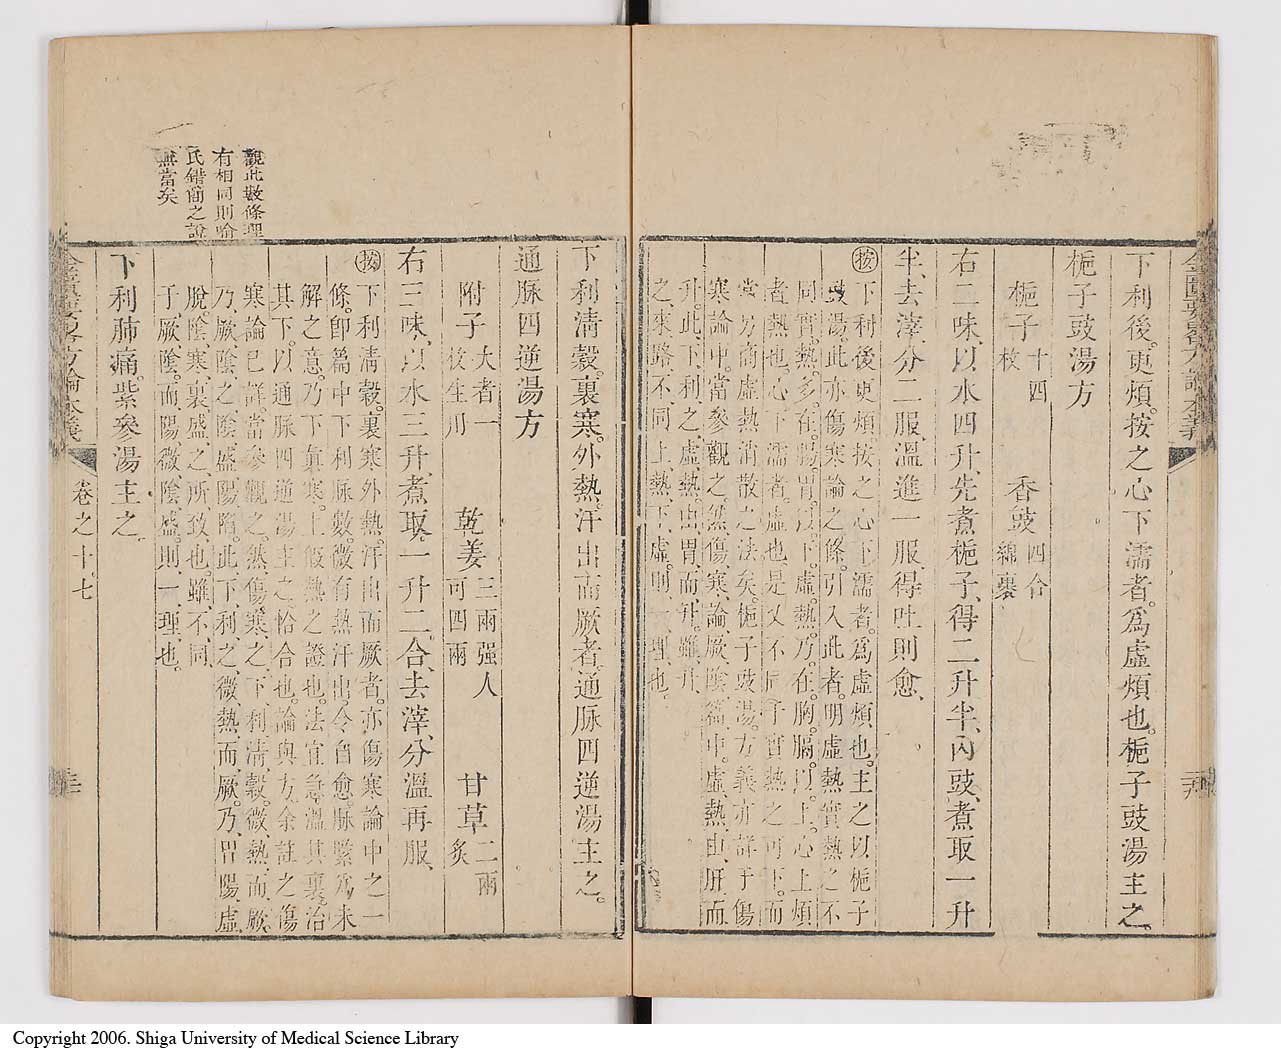 下利後。更煩。按之心下濡者。爲虛煩也。梔子豉湯主之。
梔子豉湯方
梔子十四枚 香豉四合綿裹
右二味、以水四升、先煮梔子、得二升半、內豉、煮取一升
半、去滓、分二服、溫進一服、得吐則愈、
按下利後更煩、按之心下濡者。爲虛煩也。主之以梔子
豉湯。此亦傷寒論之條。引入此者。明虛熱實熱之不
同。實熱。多在腸胃。以下。虛熱。乃。在胸膈。以上。心上煩
者。熱也。心下濡者。虛也。是又不同于實熱之可下。而
當另商虛熱消散之法矣。梔子豉湯。方義亦詳于傷
寒論中。當參觀之。然傷寒論厥陰篇中。虛熱由肝而
升。此下利之虛熱。由胃而升。雖升
之來路不同。上熱下虛。則一理也。
下利淸穀。裏寒。外熱。汗出而厥者。通脉四逆湯主之。
通脉四逆湯方
附子大者一枚生用 乾姜三兩强人可四兩 甘草二兩炙
右三味、以水三升、煮取一升二合、去滓、分溫再服、
按下利淸穀。裏寒外熱。汗出而厥者。亦傷寒論中之一
條。卽篇中下利脉數。微有熱汗出。令自愈。脉緊爲未
解之意。乃下眞寒。上假熱之證也。法宜急溫其裏。治
其下。以通脉四逆湯主之恰合也。論與方。余註之傷
寒論已詳。當參觀之。然傷寒之下利淸穀。微熱而厥。
乃厥陰之陰盛陽陷。此下利之微熱而厥。乃胃陽虛
脫。陰寒裏盛之所致也。雖不同
于厥陰。而陽微陰盛。則一理也。
下利肺痛。紫參湯主之。
卷之十七
觀此數條理
有相同則喻
氏錯簡之說
無當矣
Copyright 2006. Shiga University of Medical Science Library